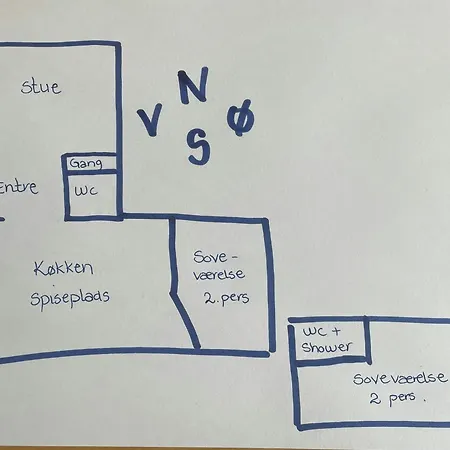 Stue
N
V
Ø
S
Gang
Entre
WC
Køkken
Spiseplads
Sove-
værelse
2.pers
WC +
Shower
Soveværelse
2 pers.